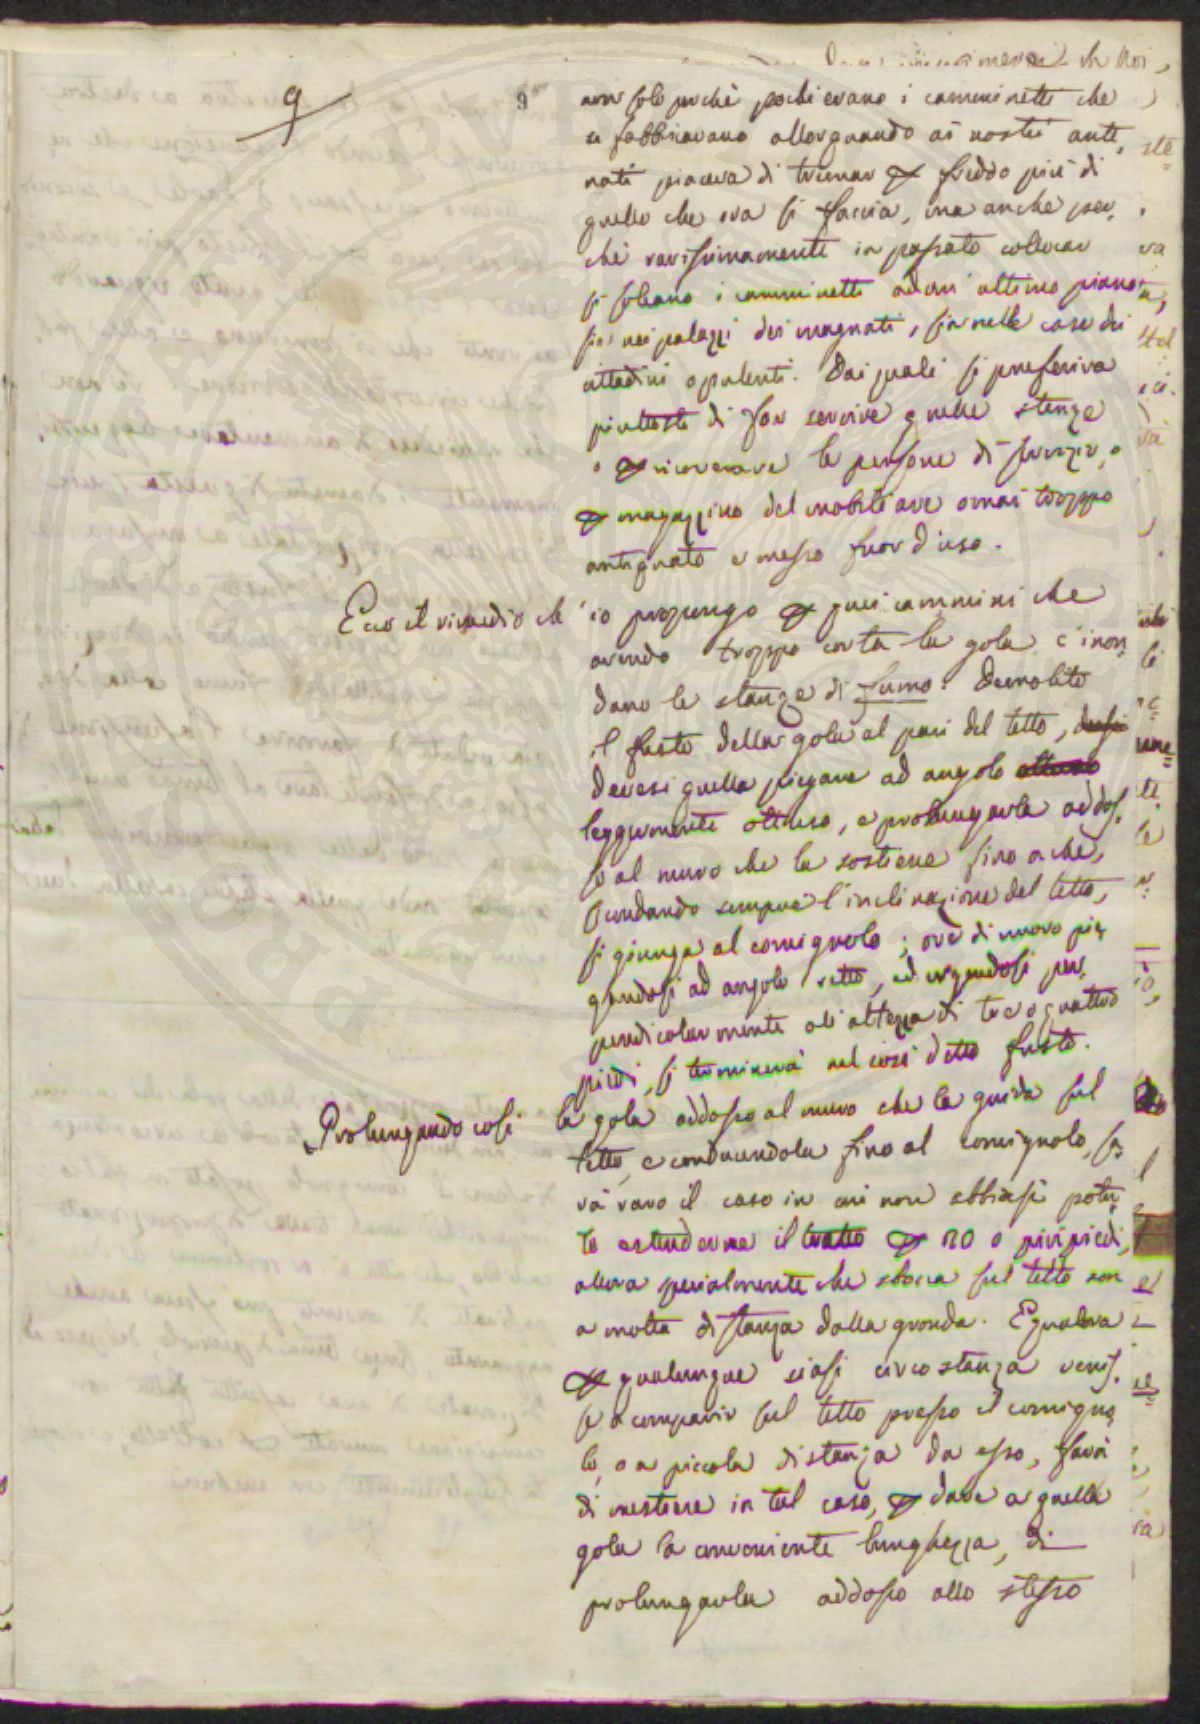 9
9
non solo perchè pochi erano i camminetti che
si fabbricavano allorquando ai nostri ante-
nati piaceva di tremar p freddo più di
quello che ora si faccia, ma anche per-
chè rarissimamente in passato collocar
si soleano i camminetti ad un' ultimo piano
sia nei palazzi dei magnati, sia nelle case dei
cittadini opulenti. Dai quali si preferiva
piuttosto di far servire quelle stanze
o p ricoverare le persone di servizio, o
p magazzino del mobiliare omai troppo
antiquato e messo fuor d'uso.
Ecco il rimedio ch' io propongo p quei cammini che
avendo troppo corta la gola c'inon-
dano le stanze di fumo. Demolito
il fusto della gola al pari del tetto,
devesi quella piegare ad angolo ottuso
leggermente ottuso, e prolungarla addos-
so al muro che la sostiene fino a che,
secondando sempre l'inclinazione del tetto,
si giunga al comignolo; ove di nuovo pie-
gandosi ad angolo retto, ed ergendosi per-
pendicolarmente all'altezza di tre o quattro
piedi, si terminerà nel così detto fusto.
Prolungando così la gola addosso al muro che la guida sul
tetto, e conducendola fino al comignolo, sa-
rà raro il caso in cui non abbiasi potu-
to estenderne il tratto p 20 o più piedi,
allora specialmente che sbocca sul tetto non
a molta distanza dalla gronda. E qualora
p qualunque siasi circostanza venis-
se a comparir sul tetto presso il comigno-
lo, o a piccola distanza da esso, sarà
di mestiere in tal caso, p dare a quella
gola la conveniente lunghezza, di
prolungarla addosso allo stesso